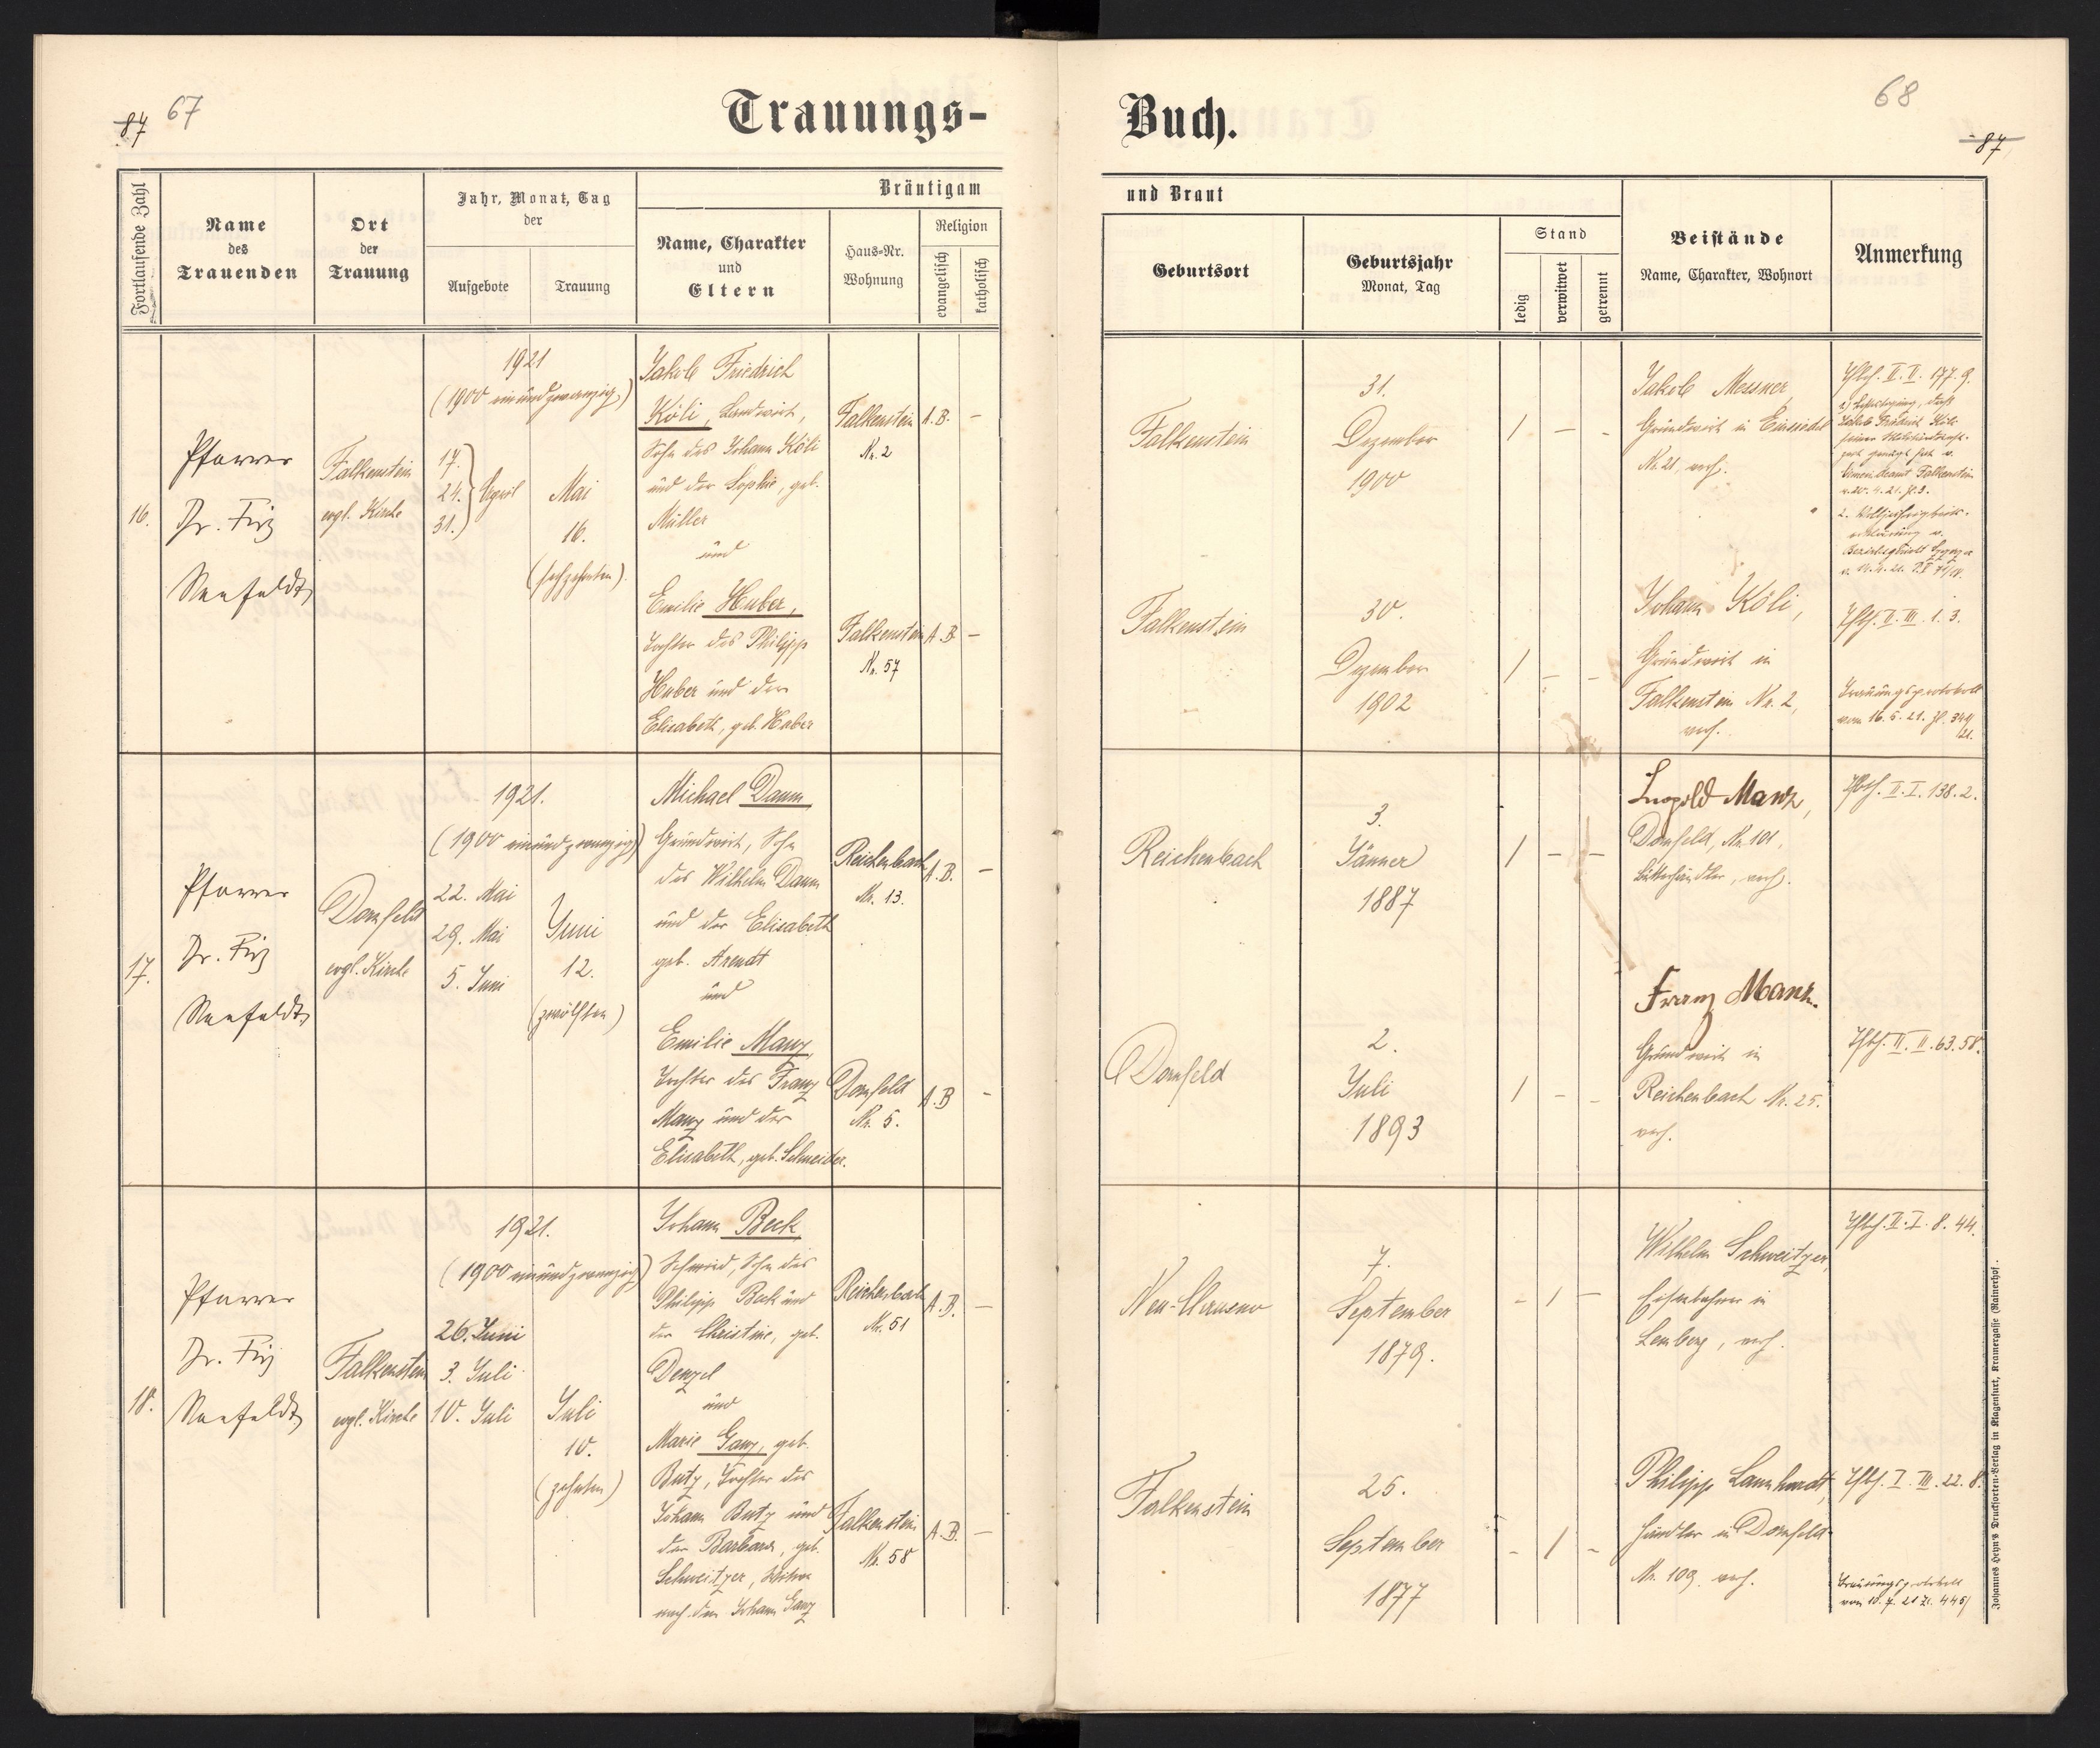 67
87
Trauungs-
Fortlaufende Zahl
Name
des
Trauenden
Ort
der
Trauung
Jahr, Monat, Tag
der
Aufgebote
Trauung
Bräutigam
Name, Charakter
und
Eltern
Haus-Nr.
Wohnung
Religion
evangelisch
katholisch
16.
Pfarrer
Dr. Fritz
Seefeldt
Falkenstein
evgl. Kirche
1921
(1900 einundzwanzig)
17.
24.
31.
April
Mai
16.
(sechzehnten).
Jakob Friedrich
Köli, Landwirt,
Sohn des Johann Köli
und der Sophie, geb.
Müller
und
Emilie Huber,
Tochter des Philipp
Huber und der
Elisabeth, geb. Huber
Falkenstein
Nr. 2
A. B. -
Falkenstein
Nr. 57
A. B -
17.
Pfarrer
Dr. Fritz
Seefeldt
Dornfeld
evgl. Kirche
1921.
(1900 einundzwanzig)
22. Mai
29. Mai
5. Juni
Juni
12.
(zwölften)
Michael Daum,
Grundwirt, Sohn
des Wilhelm Daum
und der Elisabeth
geb. Arendt
und
Emilie Manz,
Tochter des Franz
Manz und der
Elisabeth, geb. Schneider.
Reichenbach
Nr. 13.
A. B. -
Dornfeld
Nr. 5.
A. B -
18.
Pfarrer
Dr. Fritz
Seefeldt
Falkenstein
evgl. Kirche
1921.
(1900 einundzwanzig)
26. Juni
3. Juli
10. Juli
Juli
10.
(zehnten)
Johann Beck,
Schmied, Sohn des
Philipp Beck und
der Christine, geb.
Denzel
und
Marie Ganz, geb.
Butz, Tochter des
Johann Butz und
der Barbara, geb.
Schweitzer, Witwe
nach dem Johann Ganz
Reichenbach
Nr. 51
A. B. -
Falkenstein
Nr. 58
A. B. -
68
87
Buch.
und Braut
Geburtsort
Geburtsjahr
Monat, Tag
Stand
ledig
verwitwet
getrennt
Beistände
Name, Charakter, Wohnort
Anmerkung
Falkenstein
31.
Dezember
1900
/ - -
Jakob Messner,
Grundwirt in Einsiedel
Nr. 21, verh.
II. II. 177. 9.
Jakob Friedrich Köli
Falkenstein
Falkenstein
30.
Dezember
1902
/ - -
Johann Köli,
Grundwirt in
Falkenstein Nr. 2,
verh.
II. III. 1. 3.
Trauungsprotokoll
vom 16. 5. 21. Zl. 344/
21.
Reichenbach
3.
Jänner
1887
/ - -
Leopold Manz,
Dornfeld, Nr. 101,
verh.
II. I. 138. 2.
Dornfeld
2.
Juli
1893
/ - -
Franz Manz.
Grundwirt in
Reichenbach Nr. 25.
verh.
II. II. 63. 58.
Neu-Chrusno
7.
September
1879.
- / -
Wilhelm Schweitzer,
Eisenbahner in
Lemberg, verh.
II. I. 8. 44.
Falkenstein
25.
September
1877
- / -
Philipp Lannhardt,
Händler in Dornfeld
Nr. 109 verh.
I. III. 22. 8.
Trauungsprotokoll
vom 10. 7. 21 Zl. 445/
Johannes Heyn's Drucksorten-Verlag in Klagenfurt, Kramergasse (Rainerhof).